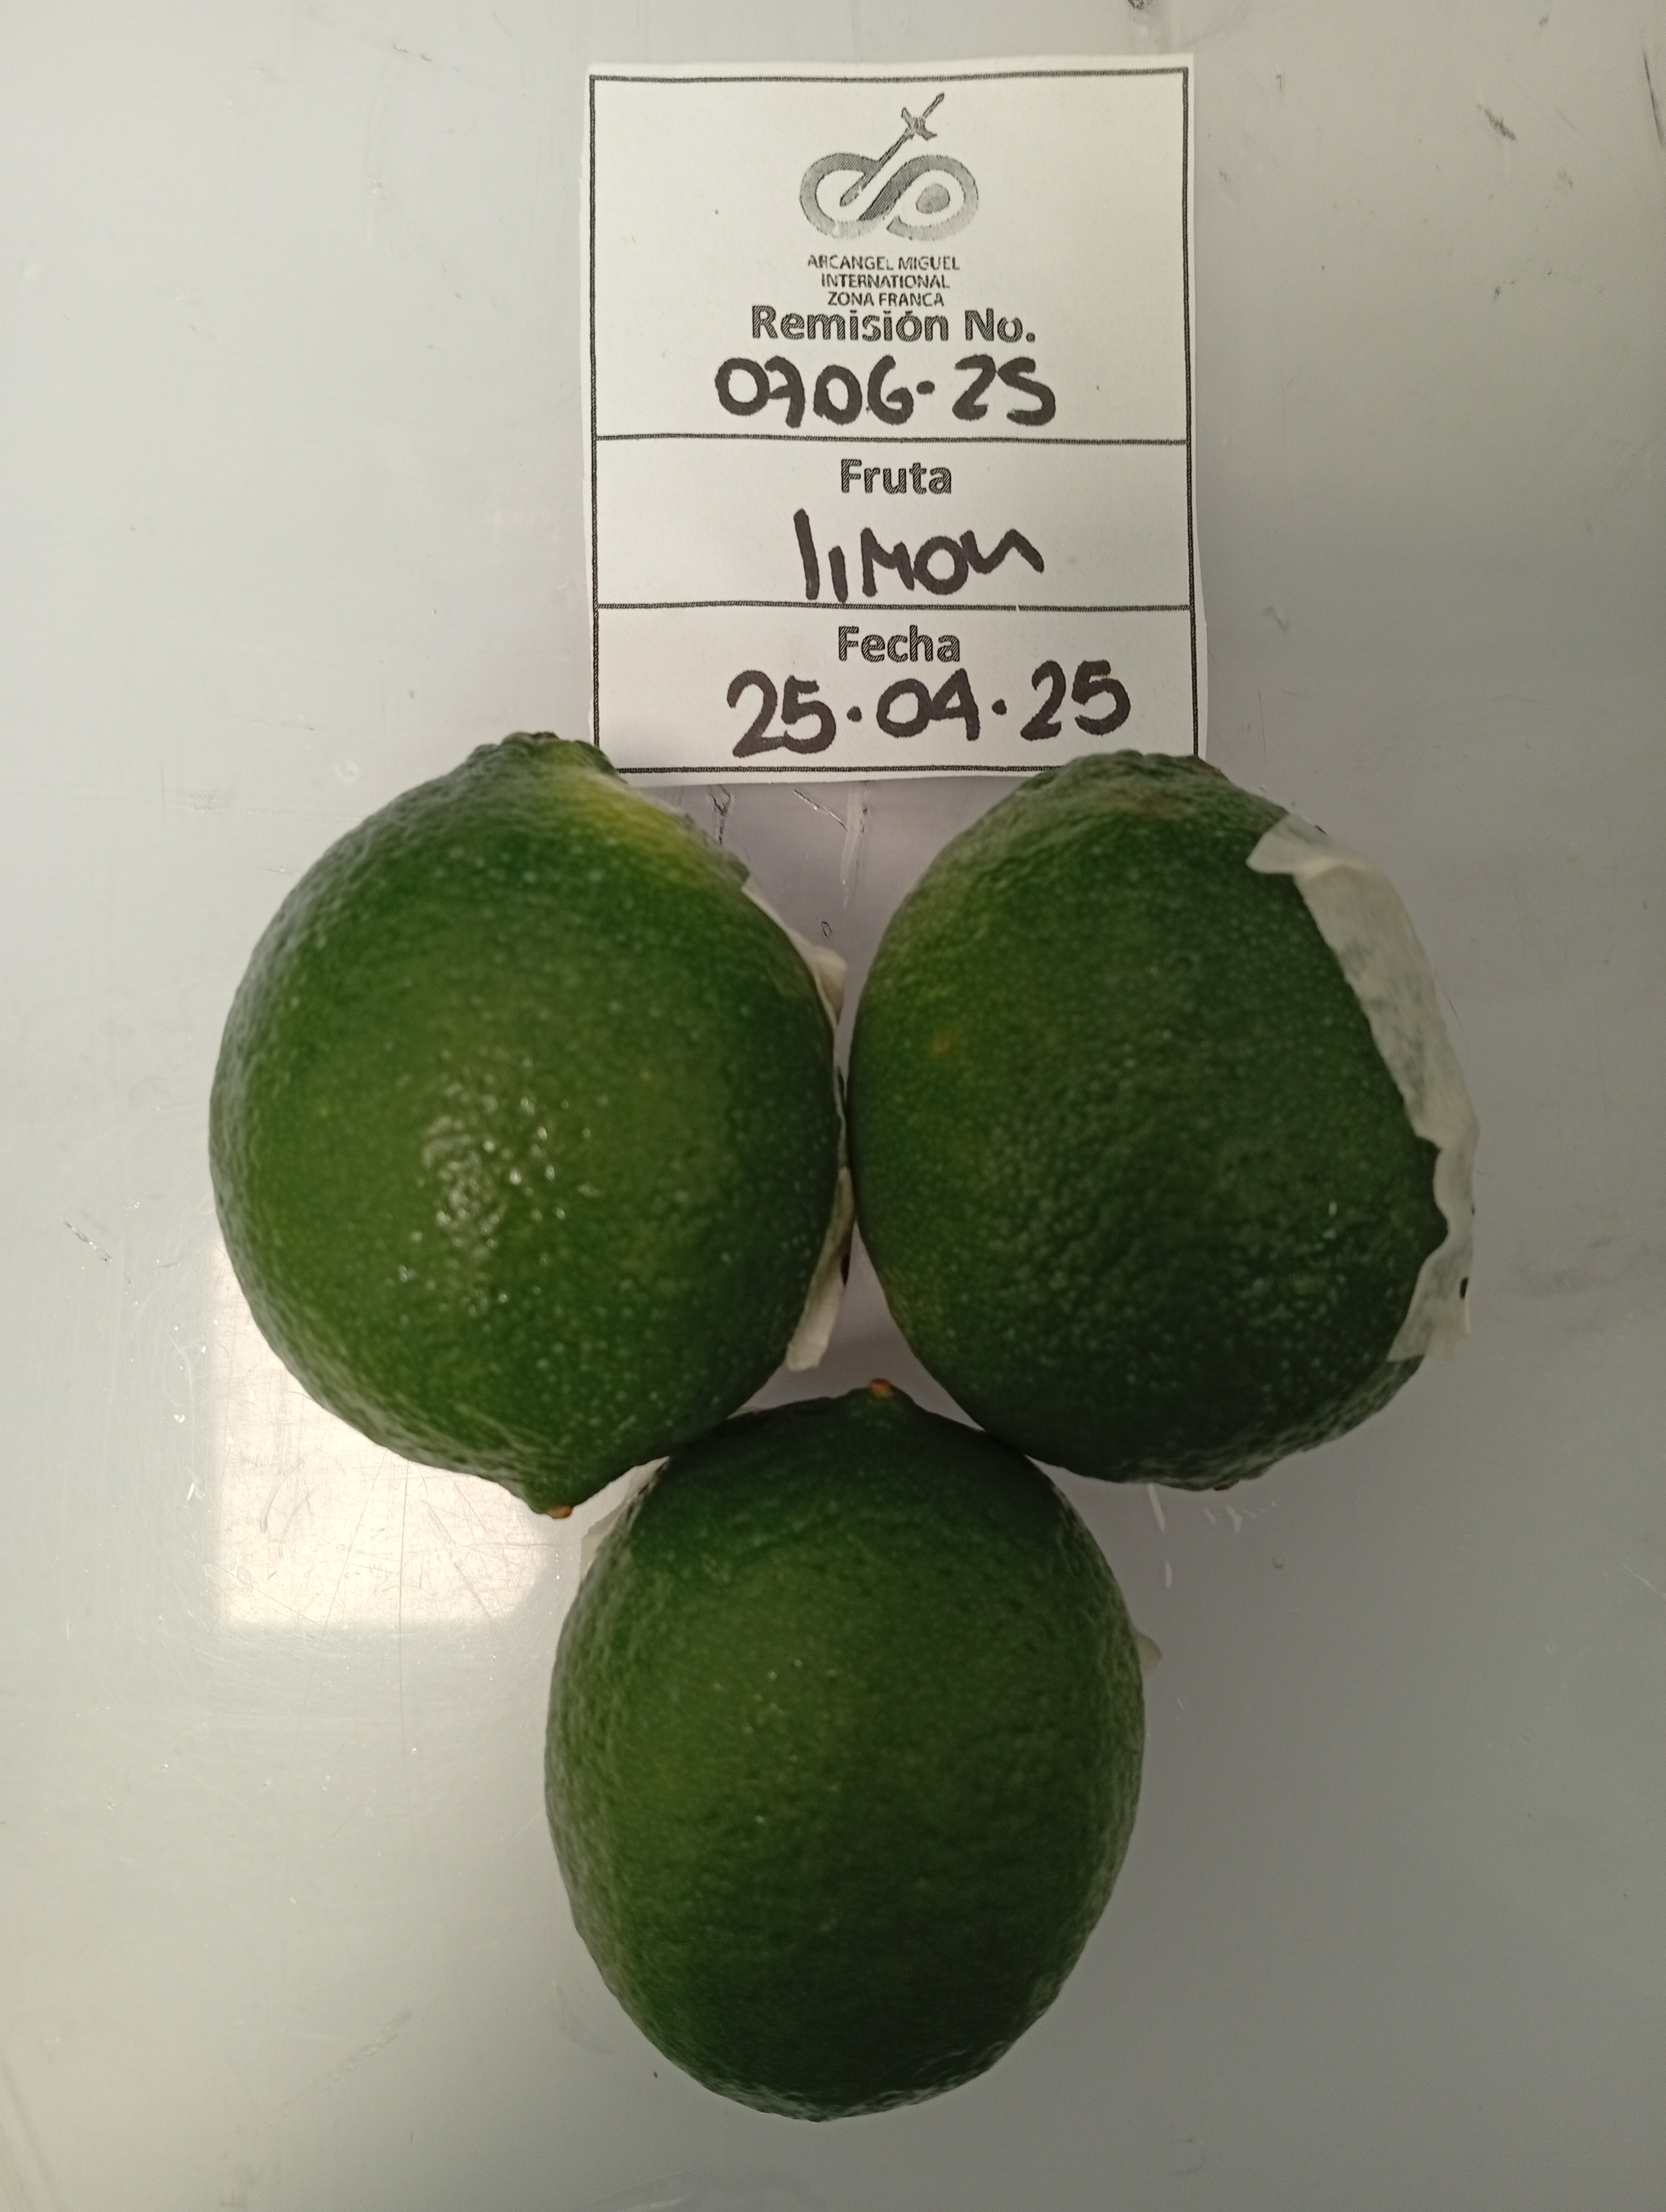 ARCANGEL MIGUEL
INTERNATIONAL
ZONA FRANCA
Remisión No.
0706-25
Fruta
limon
Fecha
25.04.25